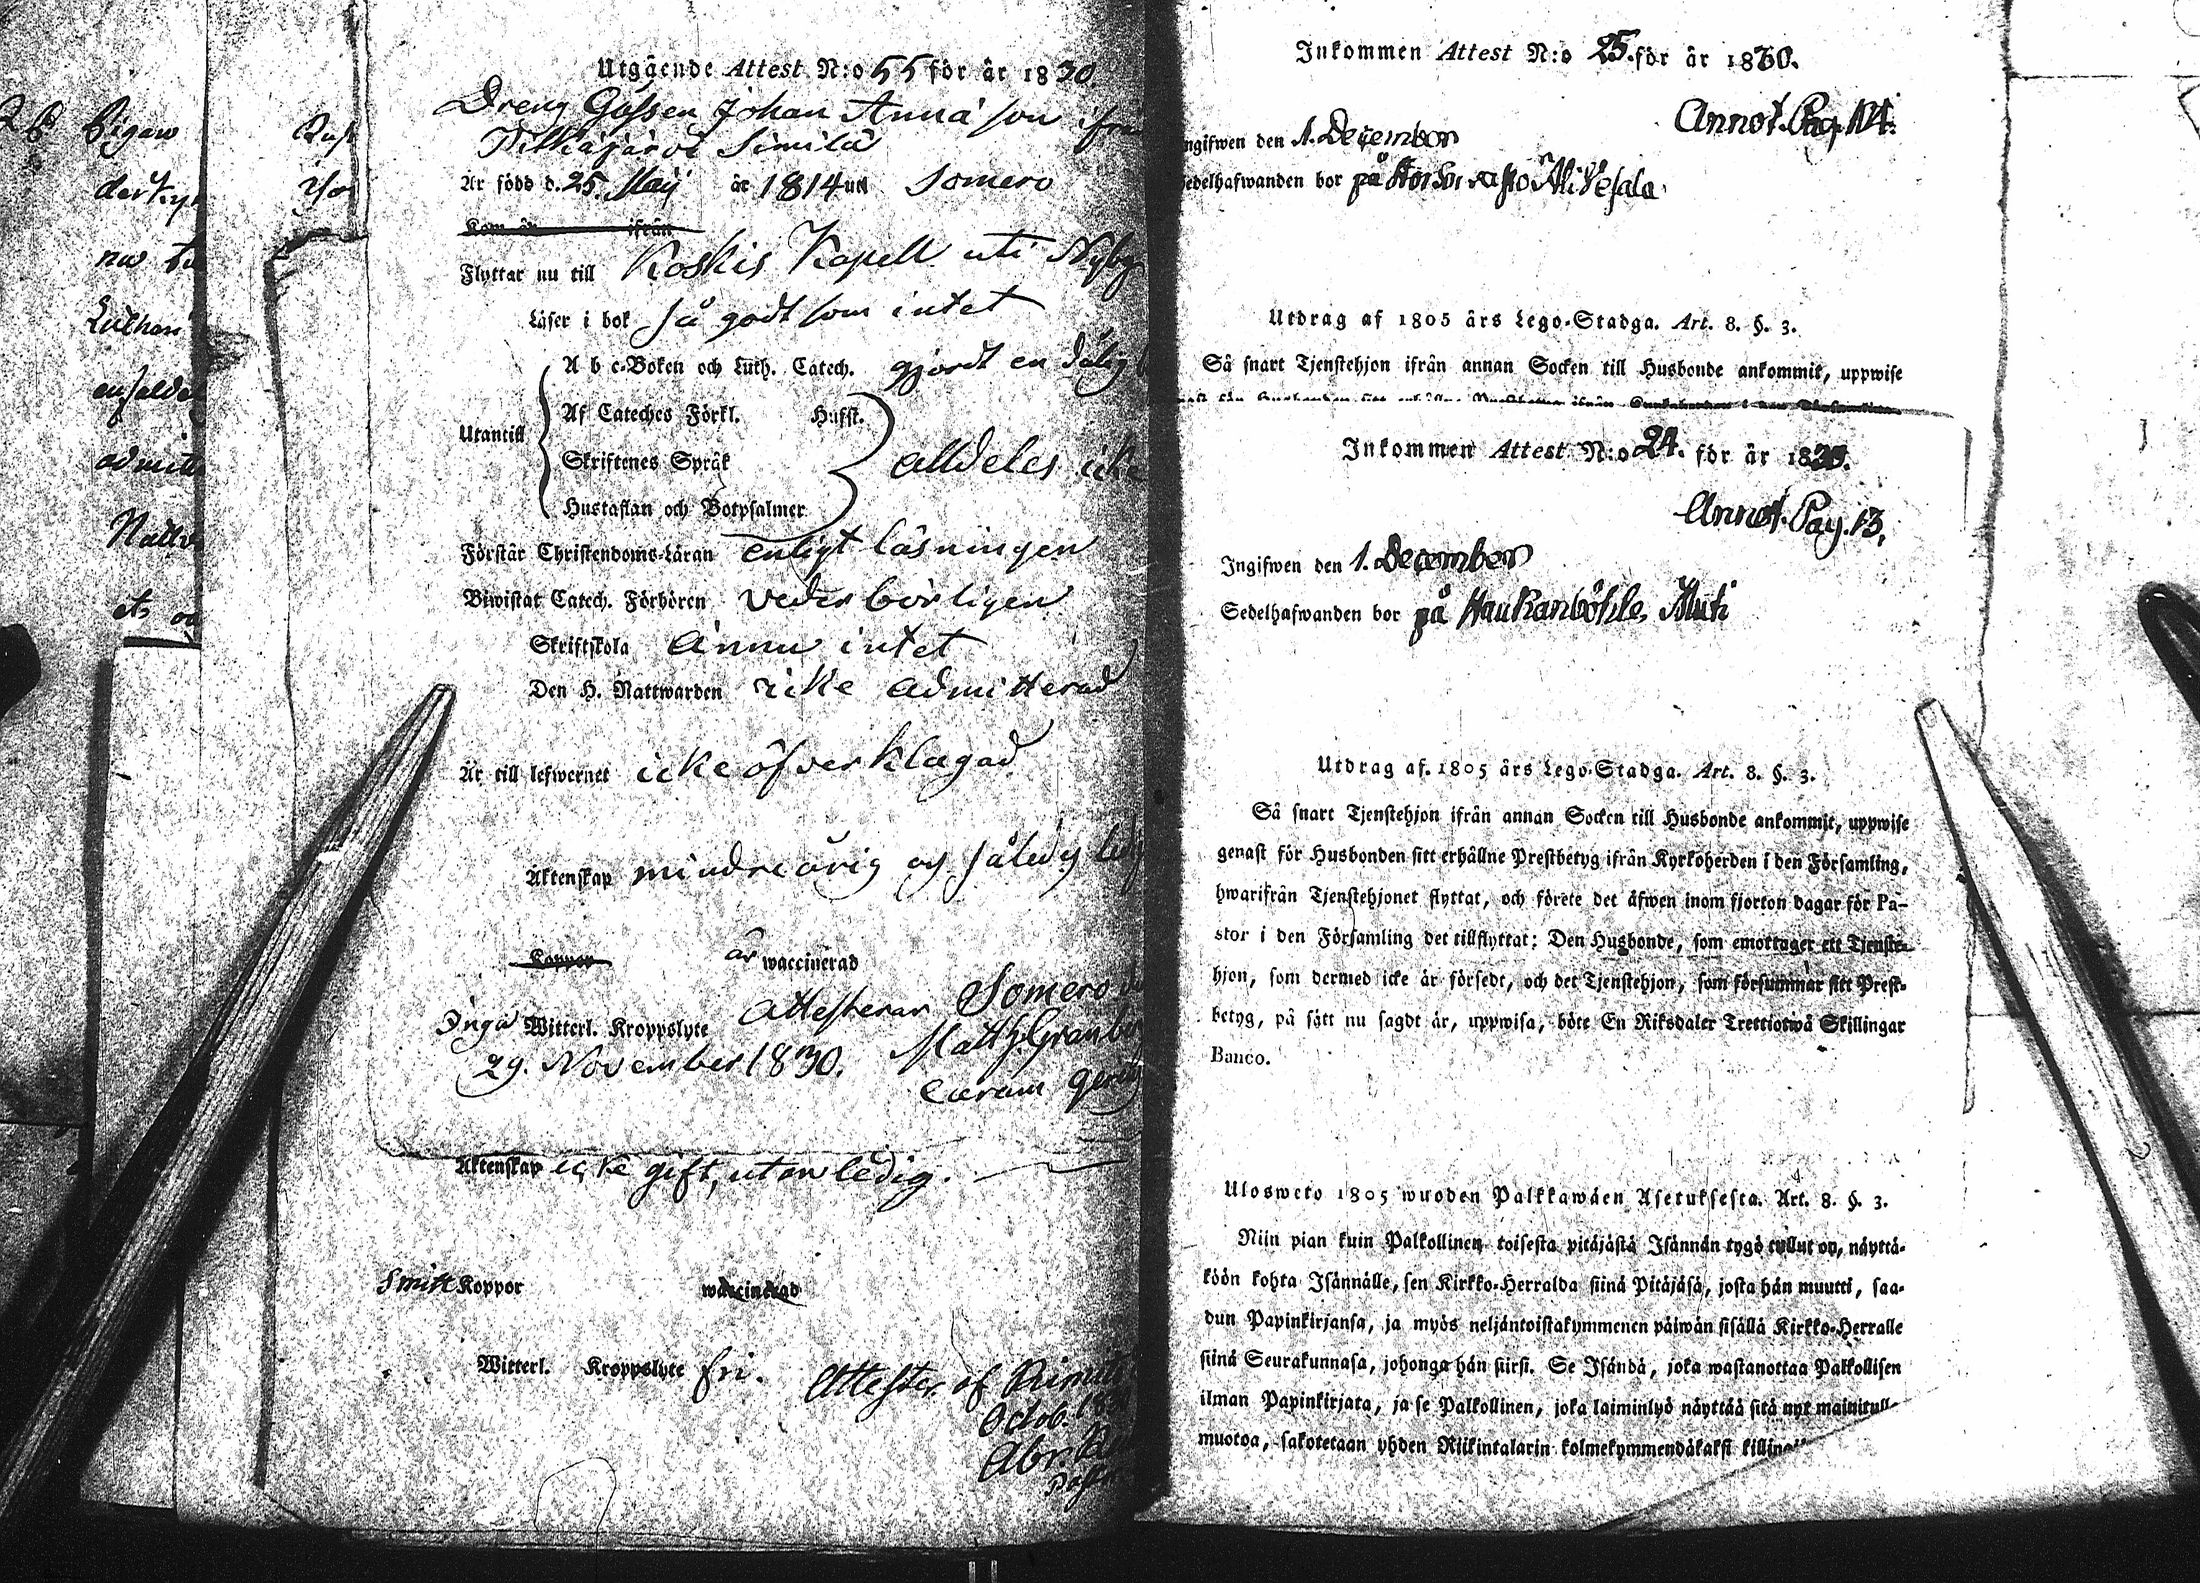 Utgående Attest N:o 55 för år 1830.
Dreng Gåssen Johan Anna son ifrån
Pilkajärvi Similä
Är född d. 25. Maij år 1814 uti Somero
Kom år ifrån
Flyttar nu till Koskis Kapell uti Nyby
Läser i bok så godt som intet
A b c-Boken och Luth. Catech. gjordt en dålig
Af Cateches Förkl. Hufst.
Utantill
Skriftenes Språk alldeles icke
Hustaflan och Botpsalmer
Förstår Christendoms-Läran enligt läsningen
Biwistat Catech. Förhören vederbörligen
Skriftskola ännu intet
Den H. Nattwarden icke admitterad
Är till lefwernet icke öfverklagad
Äktenskap mindreårig og således ledig
Koppor är waccinerad
Inga Witterl. Kroppslyte attesterar Somero
29. November 1830.
Äktenskap icke gift, utan ledig.
Smitt Koppor waccinerad
Witterl. Kroppslyte fri. Attester. af
Octob. 183
Abr.
Inkommen Attest N:o 25. för år 1830.
Annot. Pag. 104.
ngifwen den 1. December
Sedelhafwanden bor på
Utdrag af 1805 års Lego-Stadga. Art. 8. §. 3.
Så snart Tjenstehjon ifrån annan Socken till Husbonde ankommit, uppwise
Inkommen Attest N:o 24. för år 1830.
Annot. Pag. 13.
Ingifwen den 1. December
Sedelhafwanden bor på Haukanböhle,
Utdrag af 1805 års Lego-Stadga. Art. 8. §. 3.
Så snart Tjenstehjon ifrån annan Socken till Husbonde ankommit, uppwise
genast för Husbonden sitt erhållne Prestbetyg ifrån Kyrkoherden i den Församling,
hwarifrån Tjenstehjonet flyttat, och förete det äfwen inom fjorton dagar för Pa-
stor i den Församling det tillflyttat; Den Husbonde, som emottager ett Tjenste-
hjon, som dermed icke är försedt, och det Tjenstehjon, som försummar sitt Prest-
betyg, på sätt nu sagdt är, uppwisa, böte En Riksdaler Trettiotwå Skillingar
Banco.
Uloswето 1805 wuoden Palkkawäen Asetuksesta. Art. 8. §. 3.
Niin pian kuin Palkollinen toisesta pitäjästä Isännän tygö tullut on, näyttä-
köön kohta Isännälle, sen Kirkko-Herralda siinä Pitäjäsä, josta hän muutti, saa-
dun Papinkirjansa, ja myös neljäntoistakymmenen päiwän sisällä Kirkko-Herralle
siinä Seurakunnasa, johonga hän siirsi. Se Isändä, joka wastanottaa Palkollisen
ilman Papinkirjata, ja se Palkollinen, joka laiminlyö näyttää sitä nyt mainitulla
muotoa, sakotetaan yhden Riikintalarin kolmekymmendäkaksi